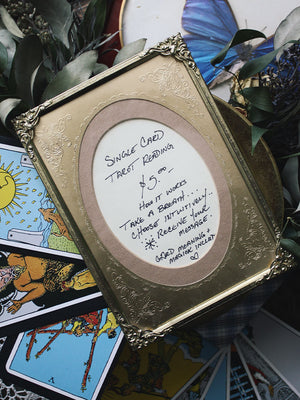 SINGLE CARD
TAROT READING
$5.00
HOW IT WORKS
TAKE A BREATH...
CHOOSE INTUITIVELY...
* RECEIVE YOUR
MESSAGE.
GRAD MORNING +